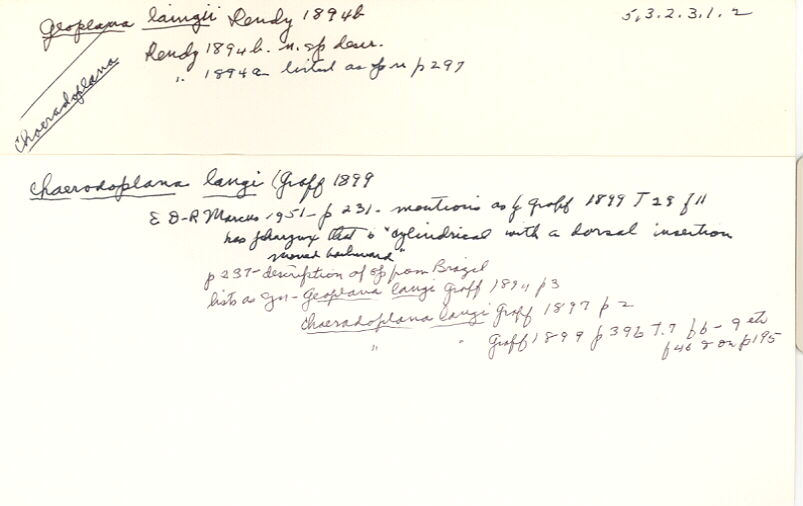 Geoplana laingii Dendy 1894b
5.3.2.3.1.2
Dendy 1894b. n. sp descr.
" 1894a listed as sp n p 297
Choeradoplana
Chaerodoplana langi (Graff 1899
E D-R Marcus 1951- p 231- mentions as of Graff 1899 T 28 f 11
has pharynx that is "cylindrical with a dorsal insertion
moved backward"
p 237- description of sp from Brazil
lists as syn- Geoplana langi Graff 1894 p 3
Chaeradoplana langi Graff 1897 p 2
" " Graff 1899 p 396 T.7 f 6-9 etc
f 46 on p 195